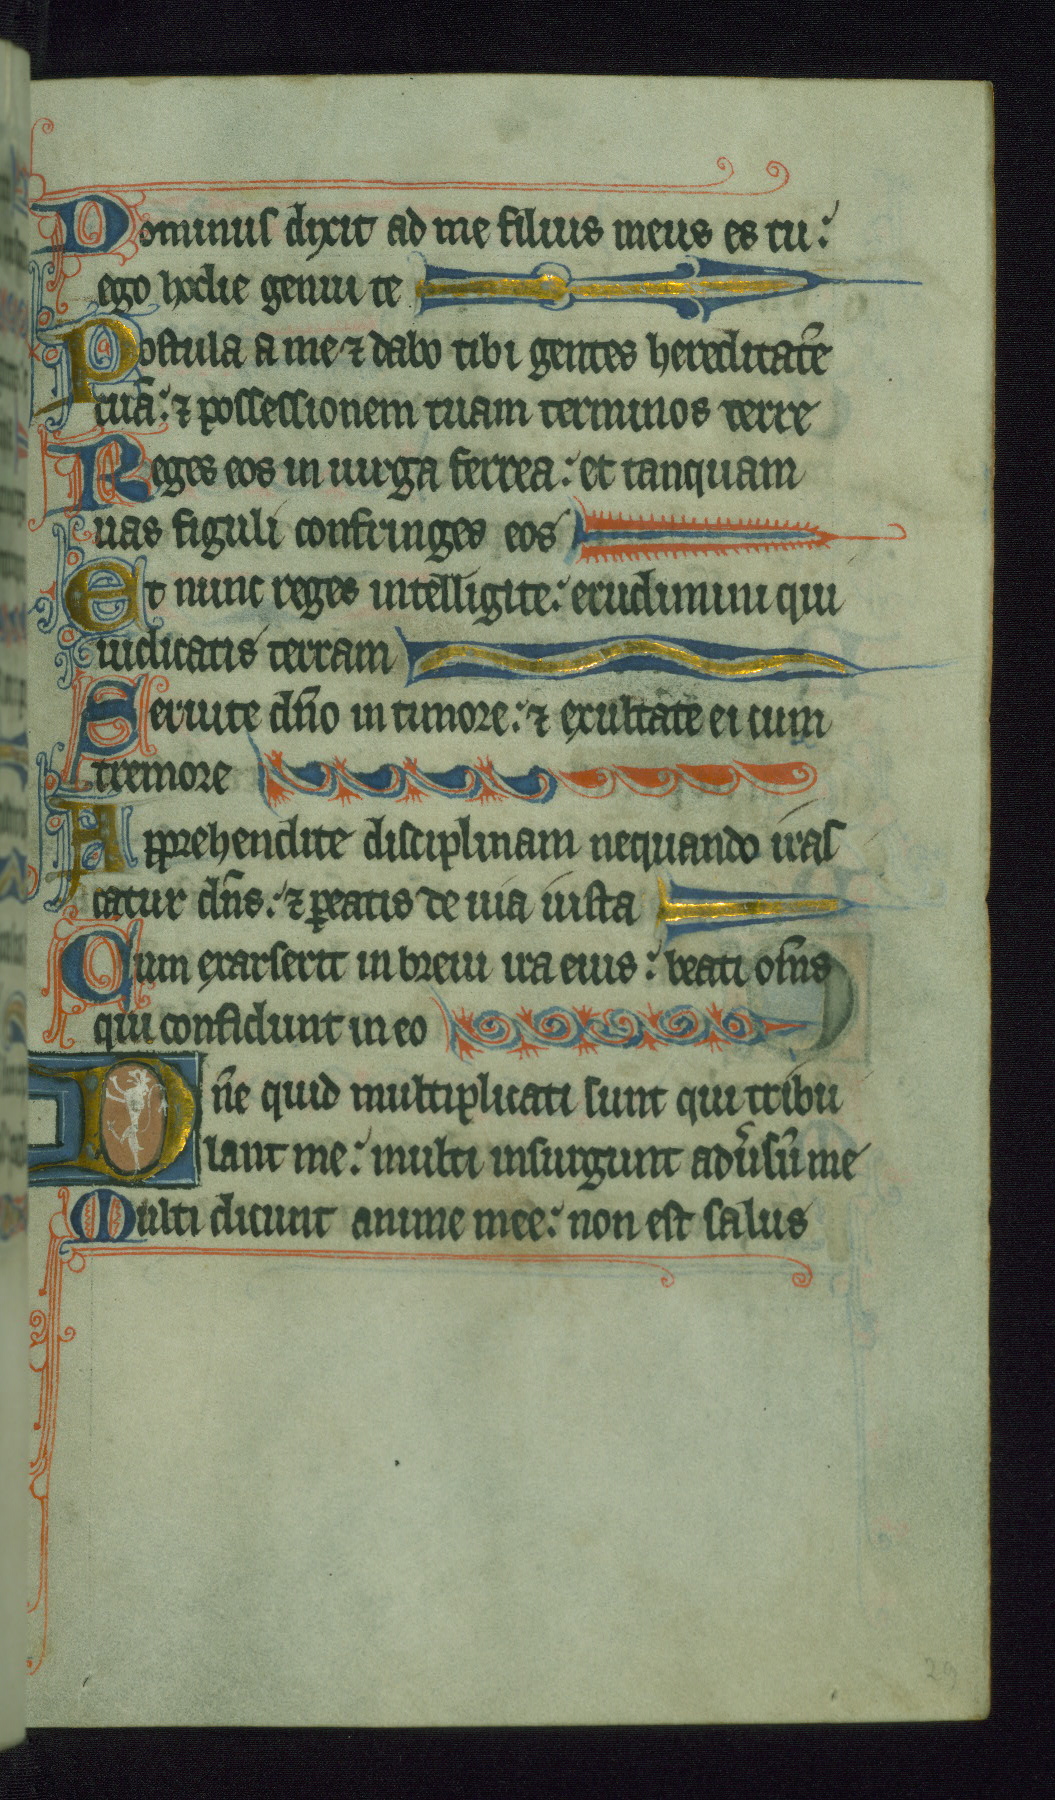 Dominus dixit ad me filius meus es tu:
ego hodie genui te
Postula a me ⁊ dabo tibi gentes hereditatē
tuā: ⁊ possessionem tuam terminos terre
Reges eos in uirga ferrea: et tanquam
uas figuli confringes eos
Et nunc reges intelligite: erudimini qui
iudicatis terram
Seruite dn̄o in timore: ⁊ exultate ei cum
tremore
Apprehendite disciplinam nequando iras
catur dn̄s: ⁊ ꝑeatis de uia iusta
Cum exarserit in breui ira eius: beati om̄s
qui confidunt in eo
Dn̄e quid multiplicati sunt qui tribu
lant me: multi insurgunt adūsū me
Multi dicunt anime mee: non est salus
29